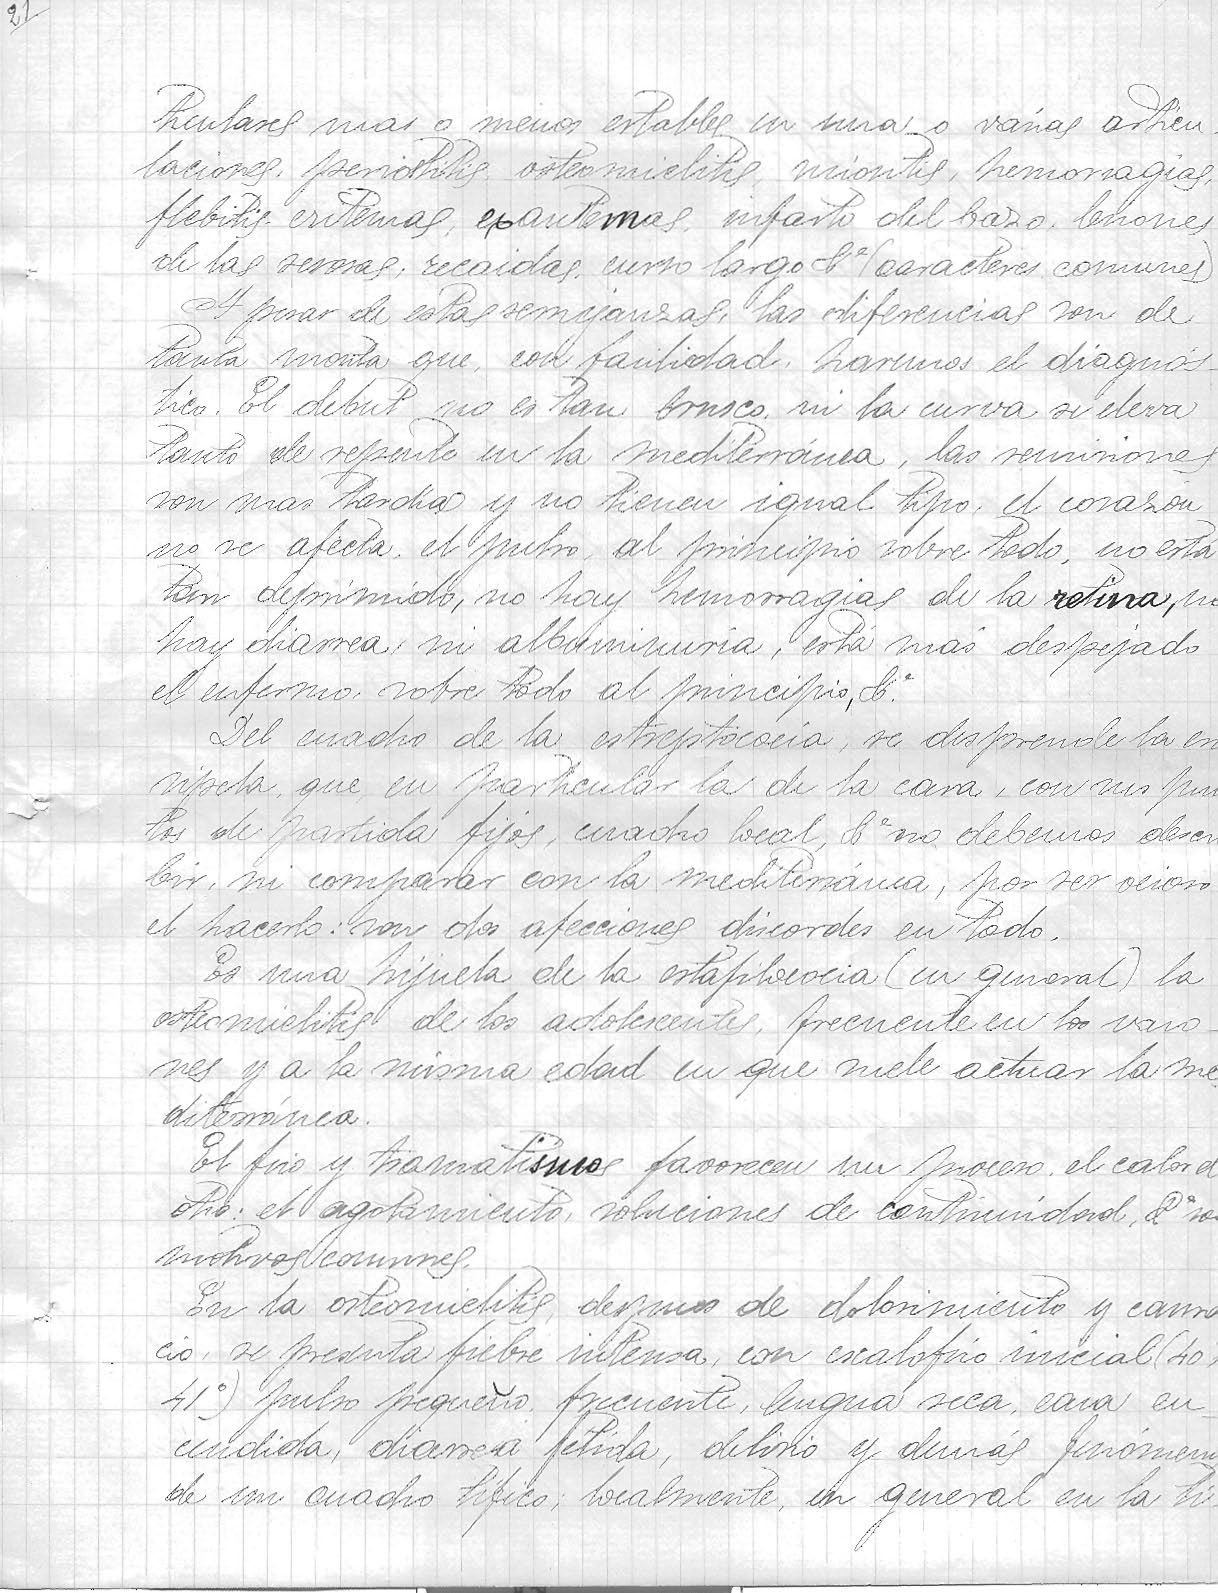 21
ticulares mas o menos estables en una o varias articu-
laciones, periostitis, osteomielitis, miositis, hemorragias,
flebitis, eritemas, exantemas, infarto del bazo, lesiones
de las serosas, recaidas, curso largo &ª (caracteres comunes)
A pesar de estas semejanzas, las diferencias son de
tanta monta que, con facilidad, haremos el diagnós-
tico. El debut no es tan brusco, ni la curva se eleva
tanto de repente en la mediterránea, las remisiones
son mas tardias y no tienen igual tipo, el corazón
no se afecta, el pulso, al principio sobre todo, no está
tan deprimido, no hay hemorragias de la retina, no
hay diarrea, ni albuminuria, está más despejado
el enfermo, sobre todo al principio, &ª
Del cuadro de la estreptococia, se desprende la eri
sipela, que, en particular la de la cara, con sus pun
tos de partida fijos, cuadro local, &ª no debemos descri
bir, ni comparar con la mediterránea, por ser ocioso
el hacerlo: son dos afecciones discordes en todo.
Es una hijuela de la estafilococia (en general) la
osteomielitis de los adolescentes, frecuente en los varo-
nes y a la misma edad en que suele actuar la me
diterránea.
El frio y traumatismos favorecen un proceso, el calor el
otro: el agotamiento, soluciones de continuidad, &ª so
motivos comunes.
En la osteomielitis, despues de dolorimiento y cansan
cio, se presenta fiebre intensa, con escalofrio inicial (40,
41º) pulso pequeño, frecuente, lengua seca, cara en-
cendida, diarrea fétida, delirio y demás fenómenos
de un cuadro tífico; localmente, en general en la ti-